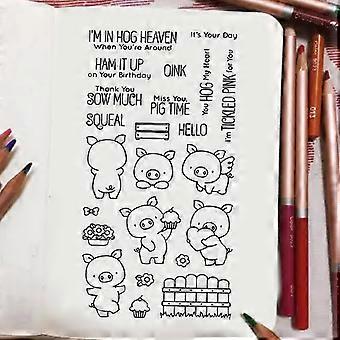 I'M IN HOG HEAVEN
When You're Around
It's Your Day
HAM IT UP
on Your Birthday
OINK
You HOG My Heart
I'm TICKLED PINK for You
Thank You
SOW MUCH
Miss You,
PIG TIME
SQUEAL
HELLO